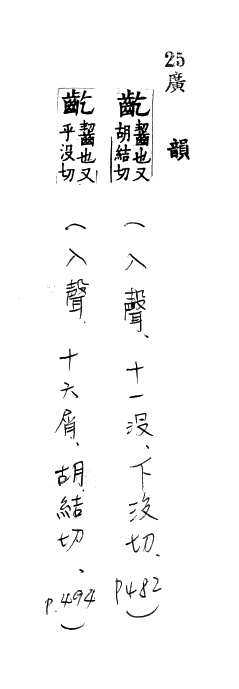 25廣韻
齕齧也又胡結切(入聲、十一沒、下沒切、P482)
齕齧也又乎没切(入聲、十六屑、胡結切、P.494)